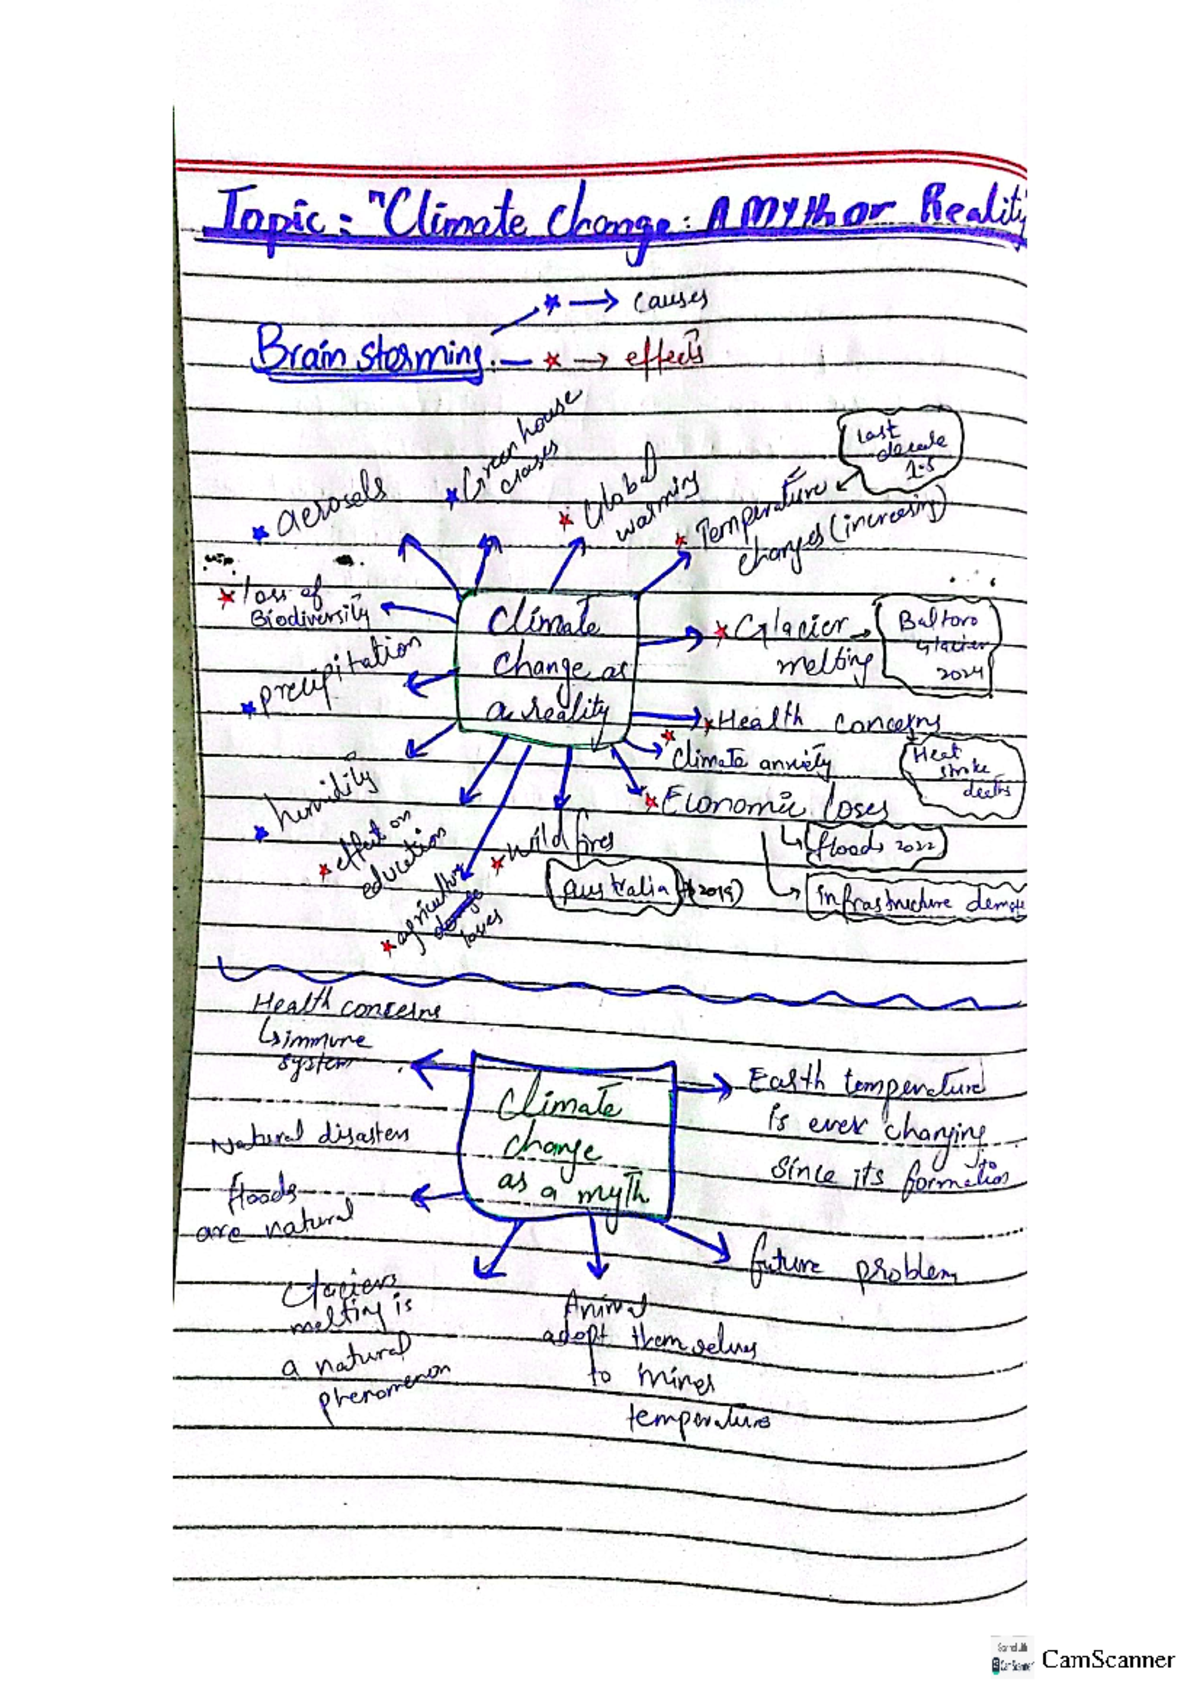 Topic: "Climate change: A Myth or Reality
Brain storming
causes
effects
aerosols
Green house
Global
warming
Temperature
changes (increasing)
Last
decade
1.5
loss of
Biodiversity
precipitation
humidity
effect on
education
agriculture
loses
wild fires
Australia (2019)
Climate
change as
a reality
Glacier
melting
Baltoro
Glacier
2024
Health concerns
Heat
stroke
deaths
Climate anxiety
Economic loses
floods 2022
infrastructure
Health concerns
immune
system
Natural disasters
floods
are natural
Glaciers
melting is
a natural
phenomenon
Climate
change
as a myth
Animal
adopt themselves
to
temperature
Earth temperature
is ever changing
since its formation
future problem
CamScanner